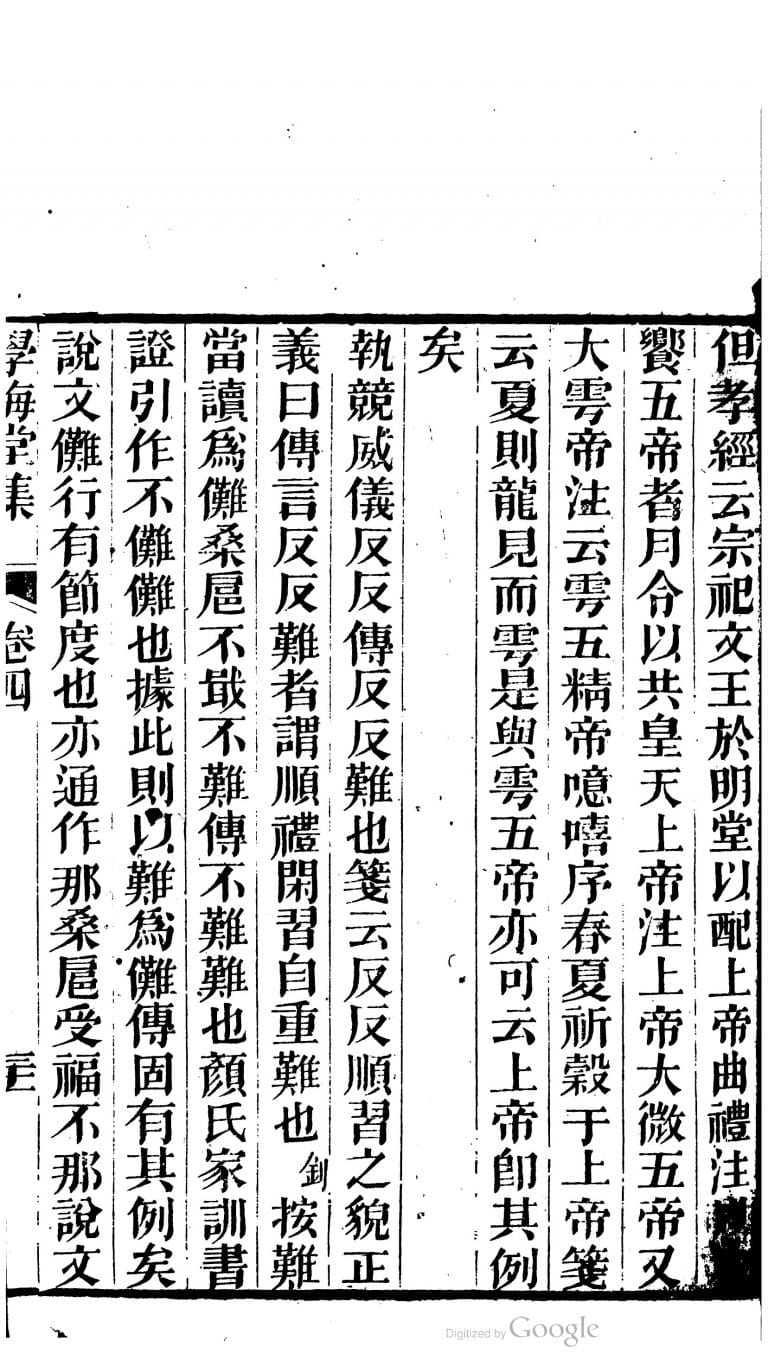 但孝經云宗祀文王於明堂以配上帝曲禮注
饗五帝者月令以共皇天上帝注上帝大微五帝又
大雩帝注云雩五精帝噫嘻序春夏祈穀于上帝箋
云夏則龍見而雩是與雩五帝亦可云上帝卽其例
矣
執競威儀反反傳反反難也箋云反反順習之貌正
義曰傳言反反難者謂順禮閑習自重難也釗按難
當讀爲儺桑扈不戢不難傳不難難也顏氏家訓書
證引作不儺儺也據此則以難爲儺傳固有其例矣
說文儺行有節度也亦通作那桑扈受福不那說文
學海堂集 卷四
Digitized by Google